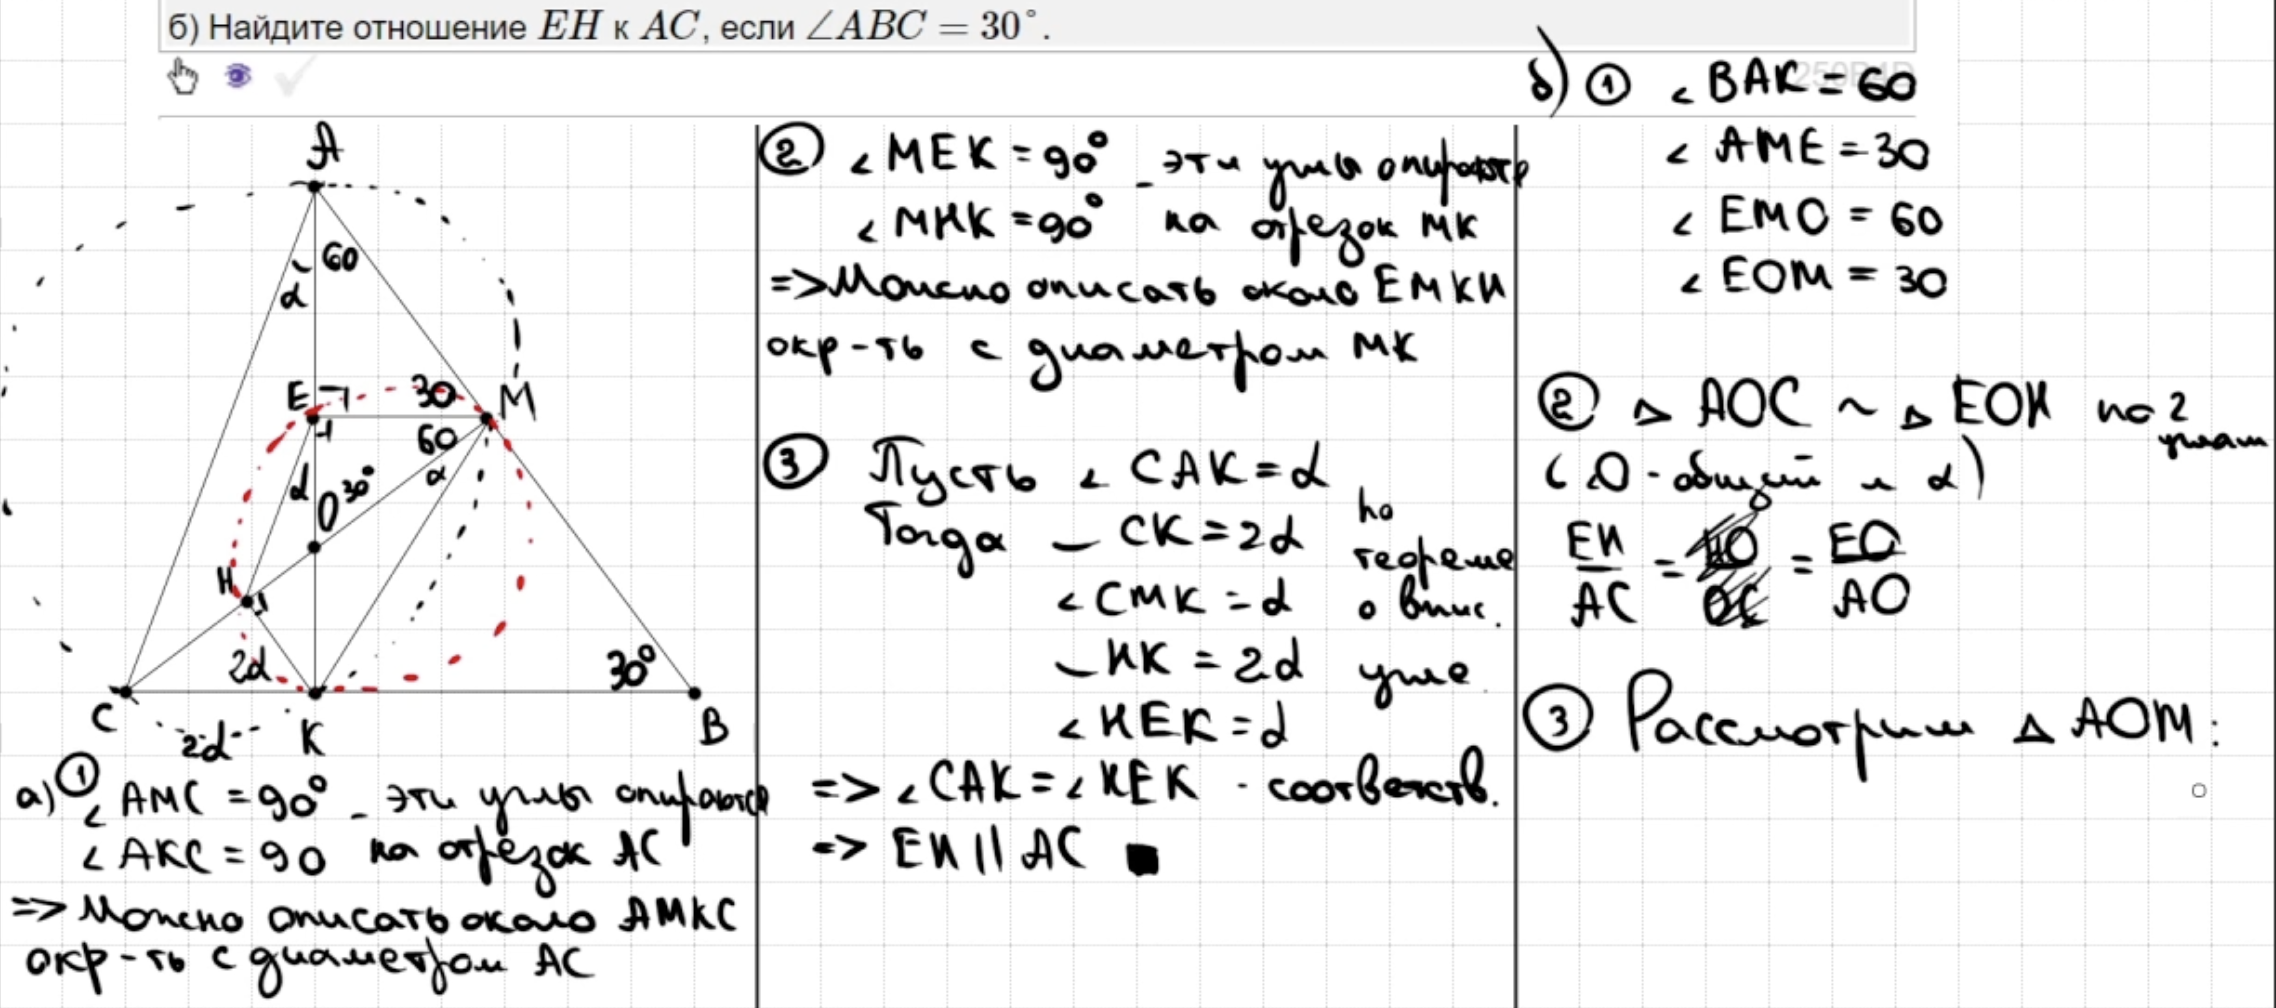 б) Найдите отношение EH к AC, если ∠ABC = 30°.
250B4D
A
60
α
E
30
M
60
α
α
30°
O
H
2α
30°
C
2α
K
B
а) ① ∠AMC = 90° - эти углы опираются
∠AKC = 90 на отрезок AC
=> Можно описать около AMKC
окр-ть с диаметром AC
② ∠MEK = 90° - эти углы опираются
∠MHK = 90° на отрезок MK
=> Можно описать около EMKH
окр-ть с диаметром MK
③ Пусть ∠CAK = α
Тогда ◡CK = 2α по
теореме
∠CMK = α о впис.
◡HK = 2α угле
∠HEK = α
=> ∠CAK = ∠HEK - соответств.
=> EH || AC ■
б) ① ∠BAK = 60
∠AME = 30
∠EMO = 60
∠EOM = 30
② △AOC ~ △EOH по 2
углам
(O - общий и α)
EH/AC = HO/OC = EO/AO
③ Рассмотрим △AOM: